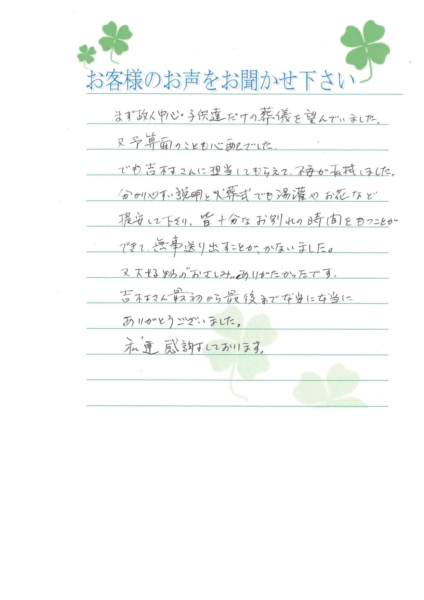 お客様のお声をお聞かせ下さい
まず故人中心・子供達だけの葬儀を望んでいました。
又予算面のことも心配でした。
でも吉村さんに担当してもらえて、不安が払拭しました。
分かりやすい説明と火葬式でも湯灌やお花など
提案して下さり、皆十分なお別れの時間をもつことが
できて、無事送り出すことが、かないました。
又大好物のおさしみ、ありがたかったです。
吉村さん最初から最後まで本当に本当に
ありがとうございました。
私達感謝しております。